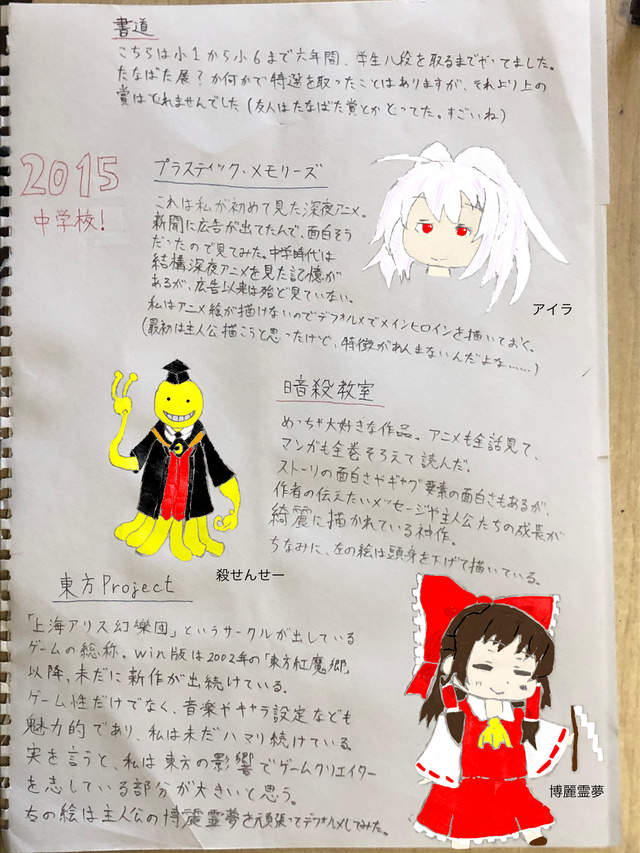 書道
こちらは小1から小6まで六年間、学生八段を取るまでやってました。
たなばた展?か何かで特選を取ったことはありますが、それより上の
賞はとれませんでした(友人はたなばた賞とかとってた。すごいね)
2015
中学校!
プラスティック・メモリーズ
これは私が初めて見た深夜アニメ。
新聞に広告が出てたんで、面白そう
だったので見てみた。中学時代は
結構深夜アニメを見た記憶が
あるが、広告以来は殆ど見ていない。
私はアニメ絵が描けないのでデフォルメでメインヒロインを描いておく。
(最初は主人公描こうと思ったけど、特徴があんまないんだよな……)
アイラ
暗殺教室
めっちゃ大好きな作品。アニメも全話見て、
マンガも全巻そろえて読んだ。
ストーリの面白さやギャグ要素の面白さもあるが、
作者の伝えたいメッセージや主人公たちの成長が
綺麗に描かれている神作。
ちなみに、左の絵は頭身を下げて描いている。
殺せんせー
東方Project
「上海アリス幻樂団」というサークルが出している
ゲームの総称。win版は2002年の「東方紅魔郷」
以降、未だに新作が出続けている。
ゲーム性だけでなく、音楽やキャラ設定なども
魅力的であり、私は未だハマり続けている。
実を言うと、私は東方の影響でゲームクリエイター
を志している部分が大きいと思う。
右の絵は主人公の博麗霊夢を頑張ってデフォルメしてみた。
博麗霊夢